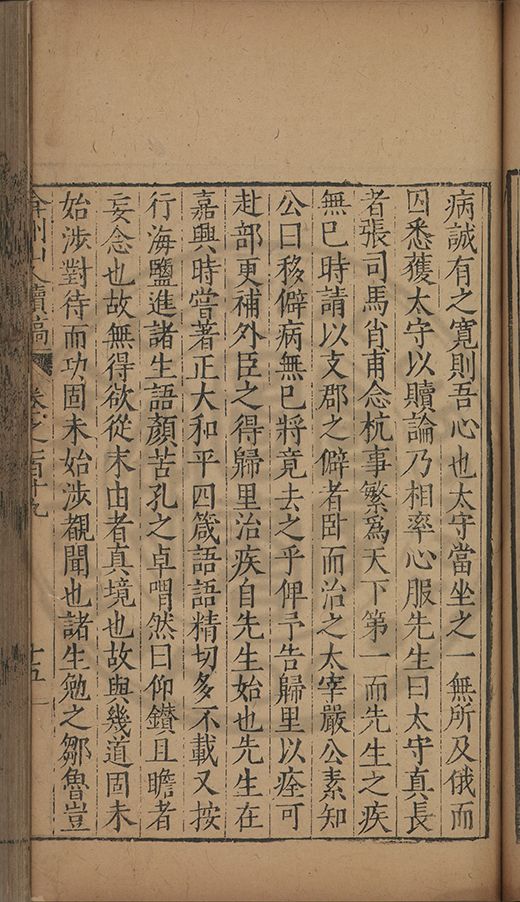 病誠有之寬則吾心也太守當坐之一無所及俄而
囚悉獲太守以贖論乃相率心服先生曰太守真長
者張司馬肖甫念杭事繁爲天下第一而先生之疾
無已時請以支郡之僻者卧而治之太宰嚴公素知
公曰移僻病無已將竟去之乎俾予告歸里以痊可
赴部更補外臣之得歸里治疾自先生始也先生在
嘉興時嘗著正大和平四箴語語精切多不載又按
行海鹽進諸生語顏苦孔之卓喟然曰仰鑽且瞻者
妄念也故無得欲從末由者真境也故與幾道固未
始涉對待而功固未始涉覩聞也諸生勉之鄒魯豈
弇州山人續稿 卷之一百十九 十五